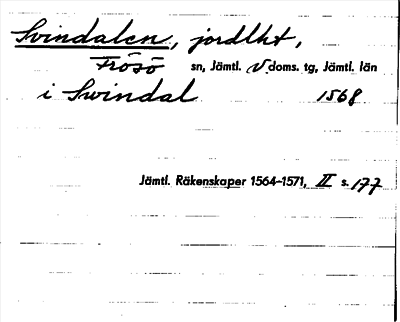 Svindalen, jordlht,
Frösö sn, Jämtl. V doms. tg, Jämtl. län
i Swindal 1568
Jämtl. Räkenskaper 1564–1571, II s. 177